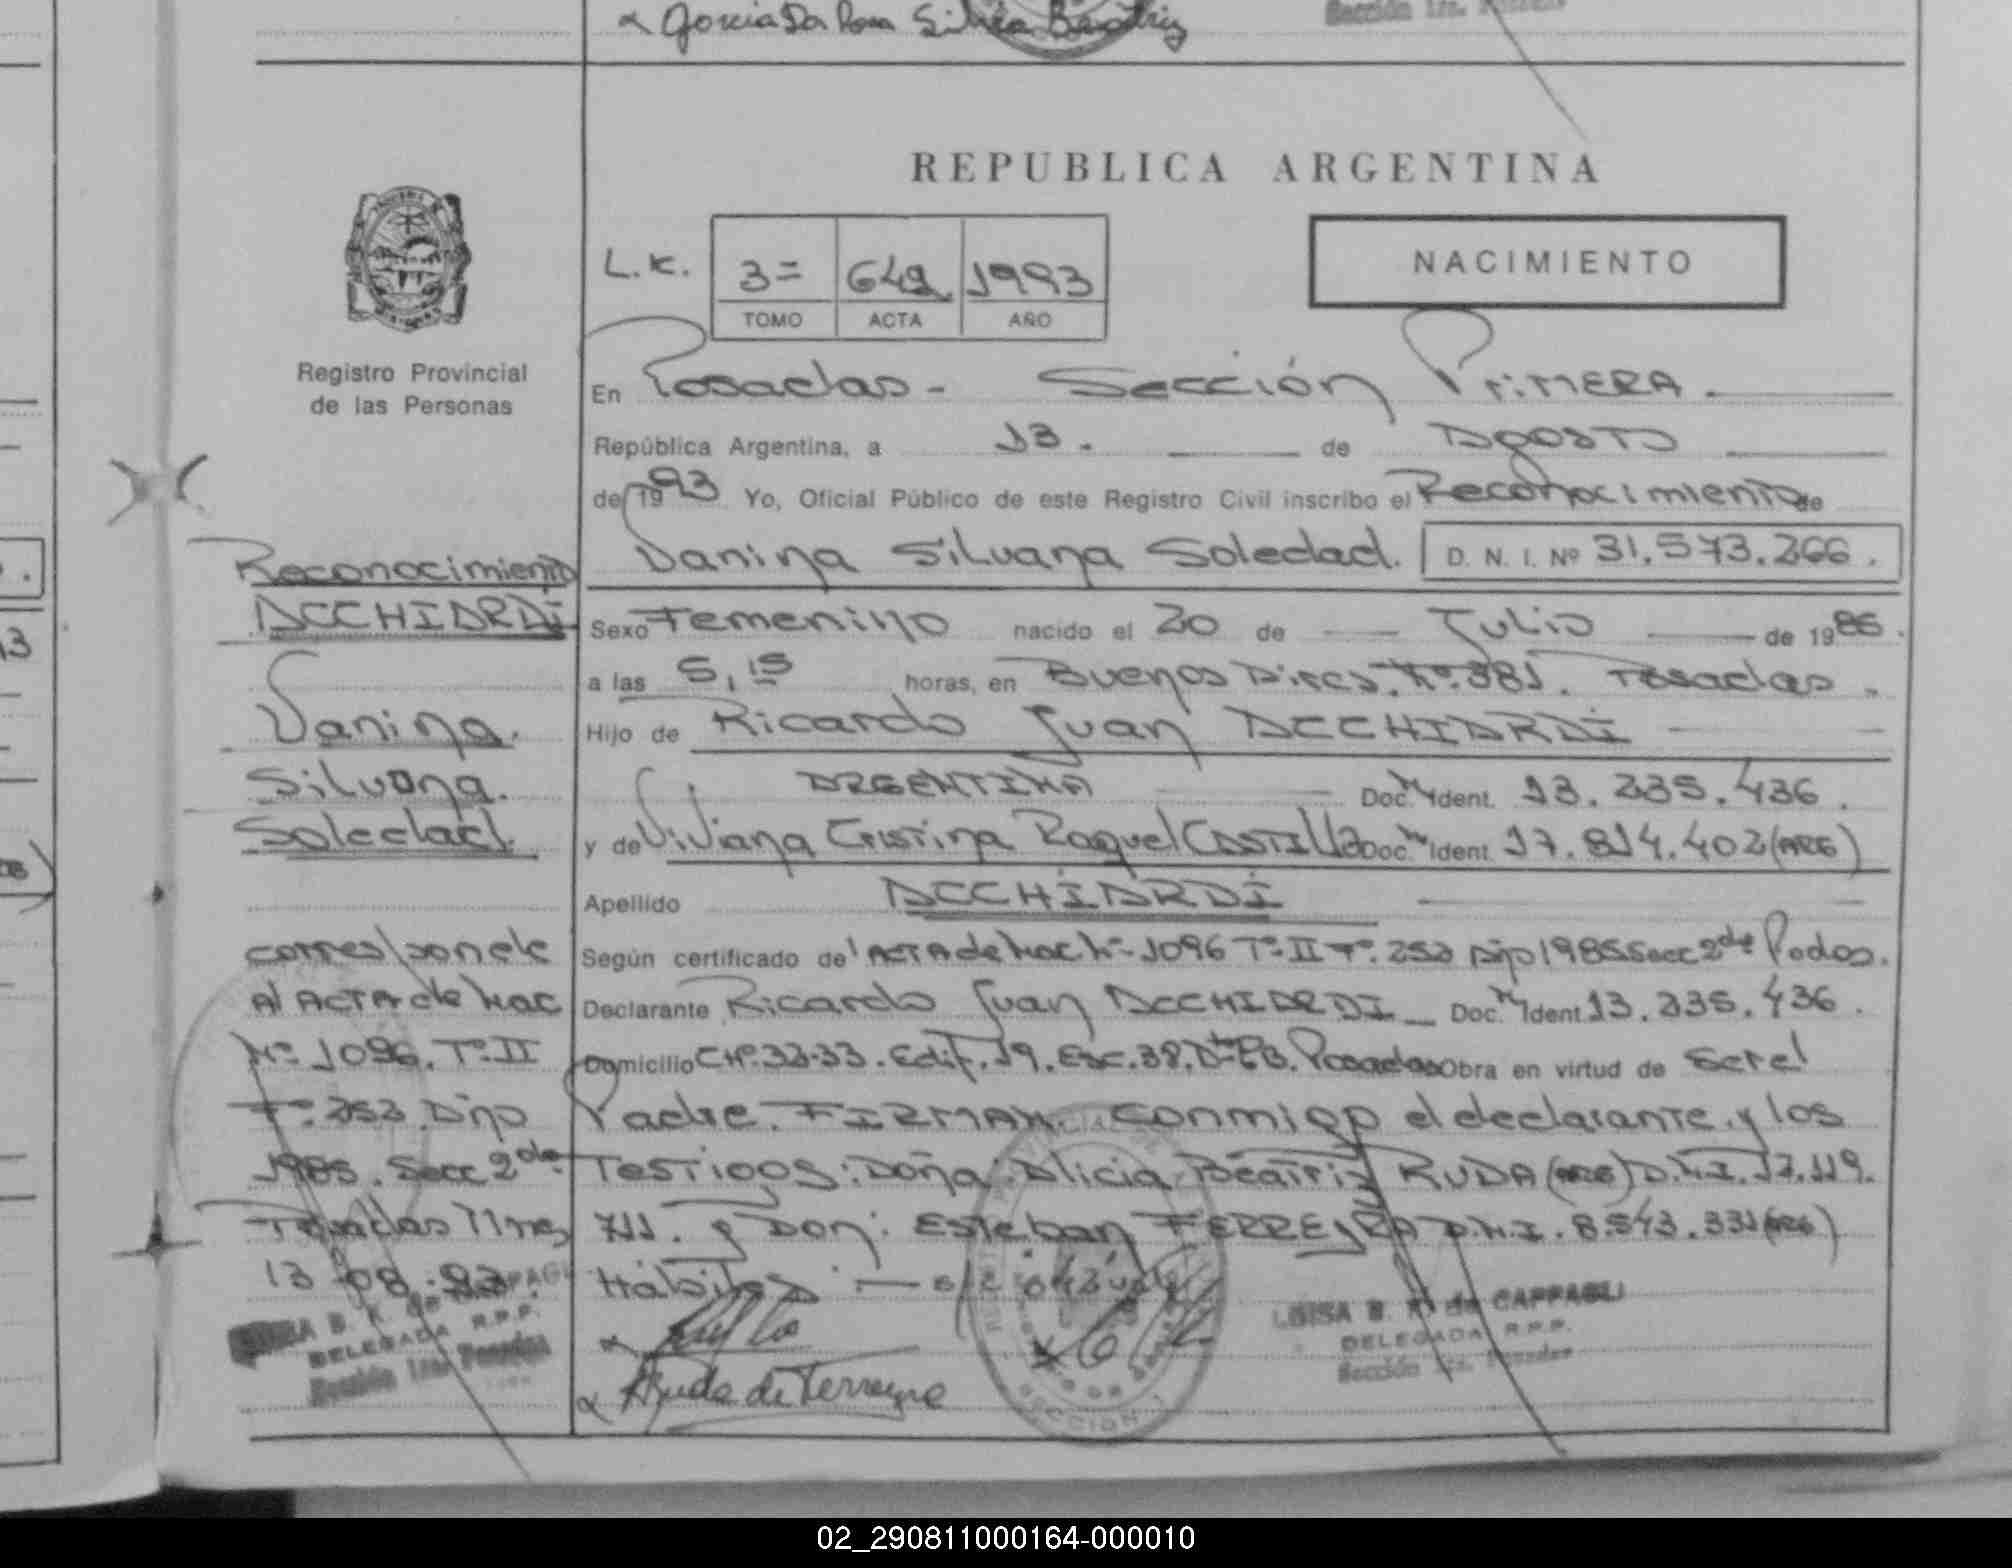 x Garcia Da Rosa Silvia Beatriz
REPUBLICA ARGENTINA
L.K. 3= 642 1993
TOMO ACTA AÑO
NACIMIENTO
Registro Provincial
de las Personas
En Posadas - Sección Primera.
República Argentina, a 13. de Agosto
de 1993 Yo, Oficial Público de este Registro Civil inscribo el Reconocimiento de
Vanina Silvana Soledad. D. N. I. Nº 31.573.266.
Sexo Femenino nacido el 20 de Julio de 1985.
a las 5,15 horas, en Buenos Aires. Nº 381. Posadas.
Hijo de Ricardo Juan ACCHIARDI
ARGENTINA Doc. Ident. 13.235.436.
y de Viviana Cristina Raquel CASTILLO Doc. Ident. 17.814.402 (ARG)
Apellido ACCHIARDI
Según certificado de ACTA de Nac Nº 1096 Tº II Fº. 252 Año 1985 Secc 2da Podas.
Declarante Ricardo Juan ACCHIARDI Doc. Ident. 13.235.436.
Domicilio CHº. 32-33. Edif. 19. Esc. 38. Posadas Obra en virtud de Ser el
Padre. FIRMAN conmigo el declarante y los
Testigos: Doña: Alicia Beatriz RUDA (ARG) D.N.I. 17.119.
711. y Don: Esteban FERREYRA D.N.I. 8.543.331 (ARG)
Hábiles
x Aruda de Ferreyra
Reconocimiento
ACCHIARDI
Vanina.
Silvana.
Soledad.
corresponde
Al ACTA de Nac
Nº 1096. Tº II
Fº. 252. Año
1985. Secc 2da.
Posadas Mnes
13-08-93.
DELEGADA R.P.P.
Sección 1ra. Posadas
LUISA B. K. de CAPPAGLI
DELEGADA R.P.P.
Sección 1ra. Posadas
SECCION 1
02_290811000164-000010